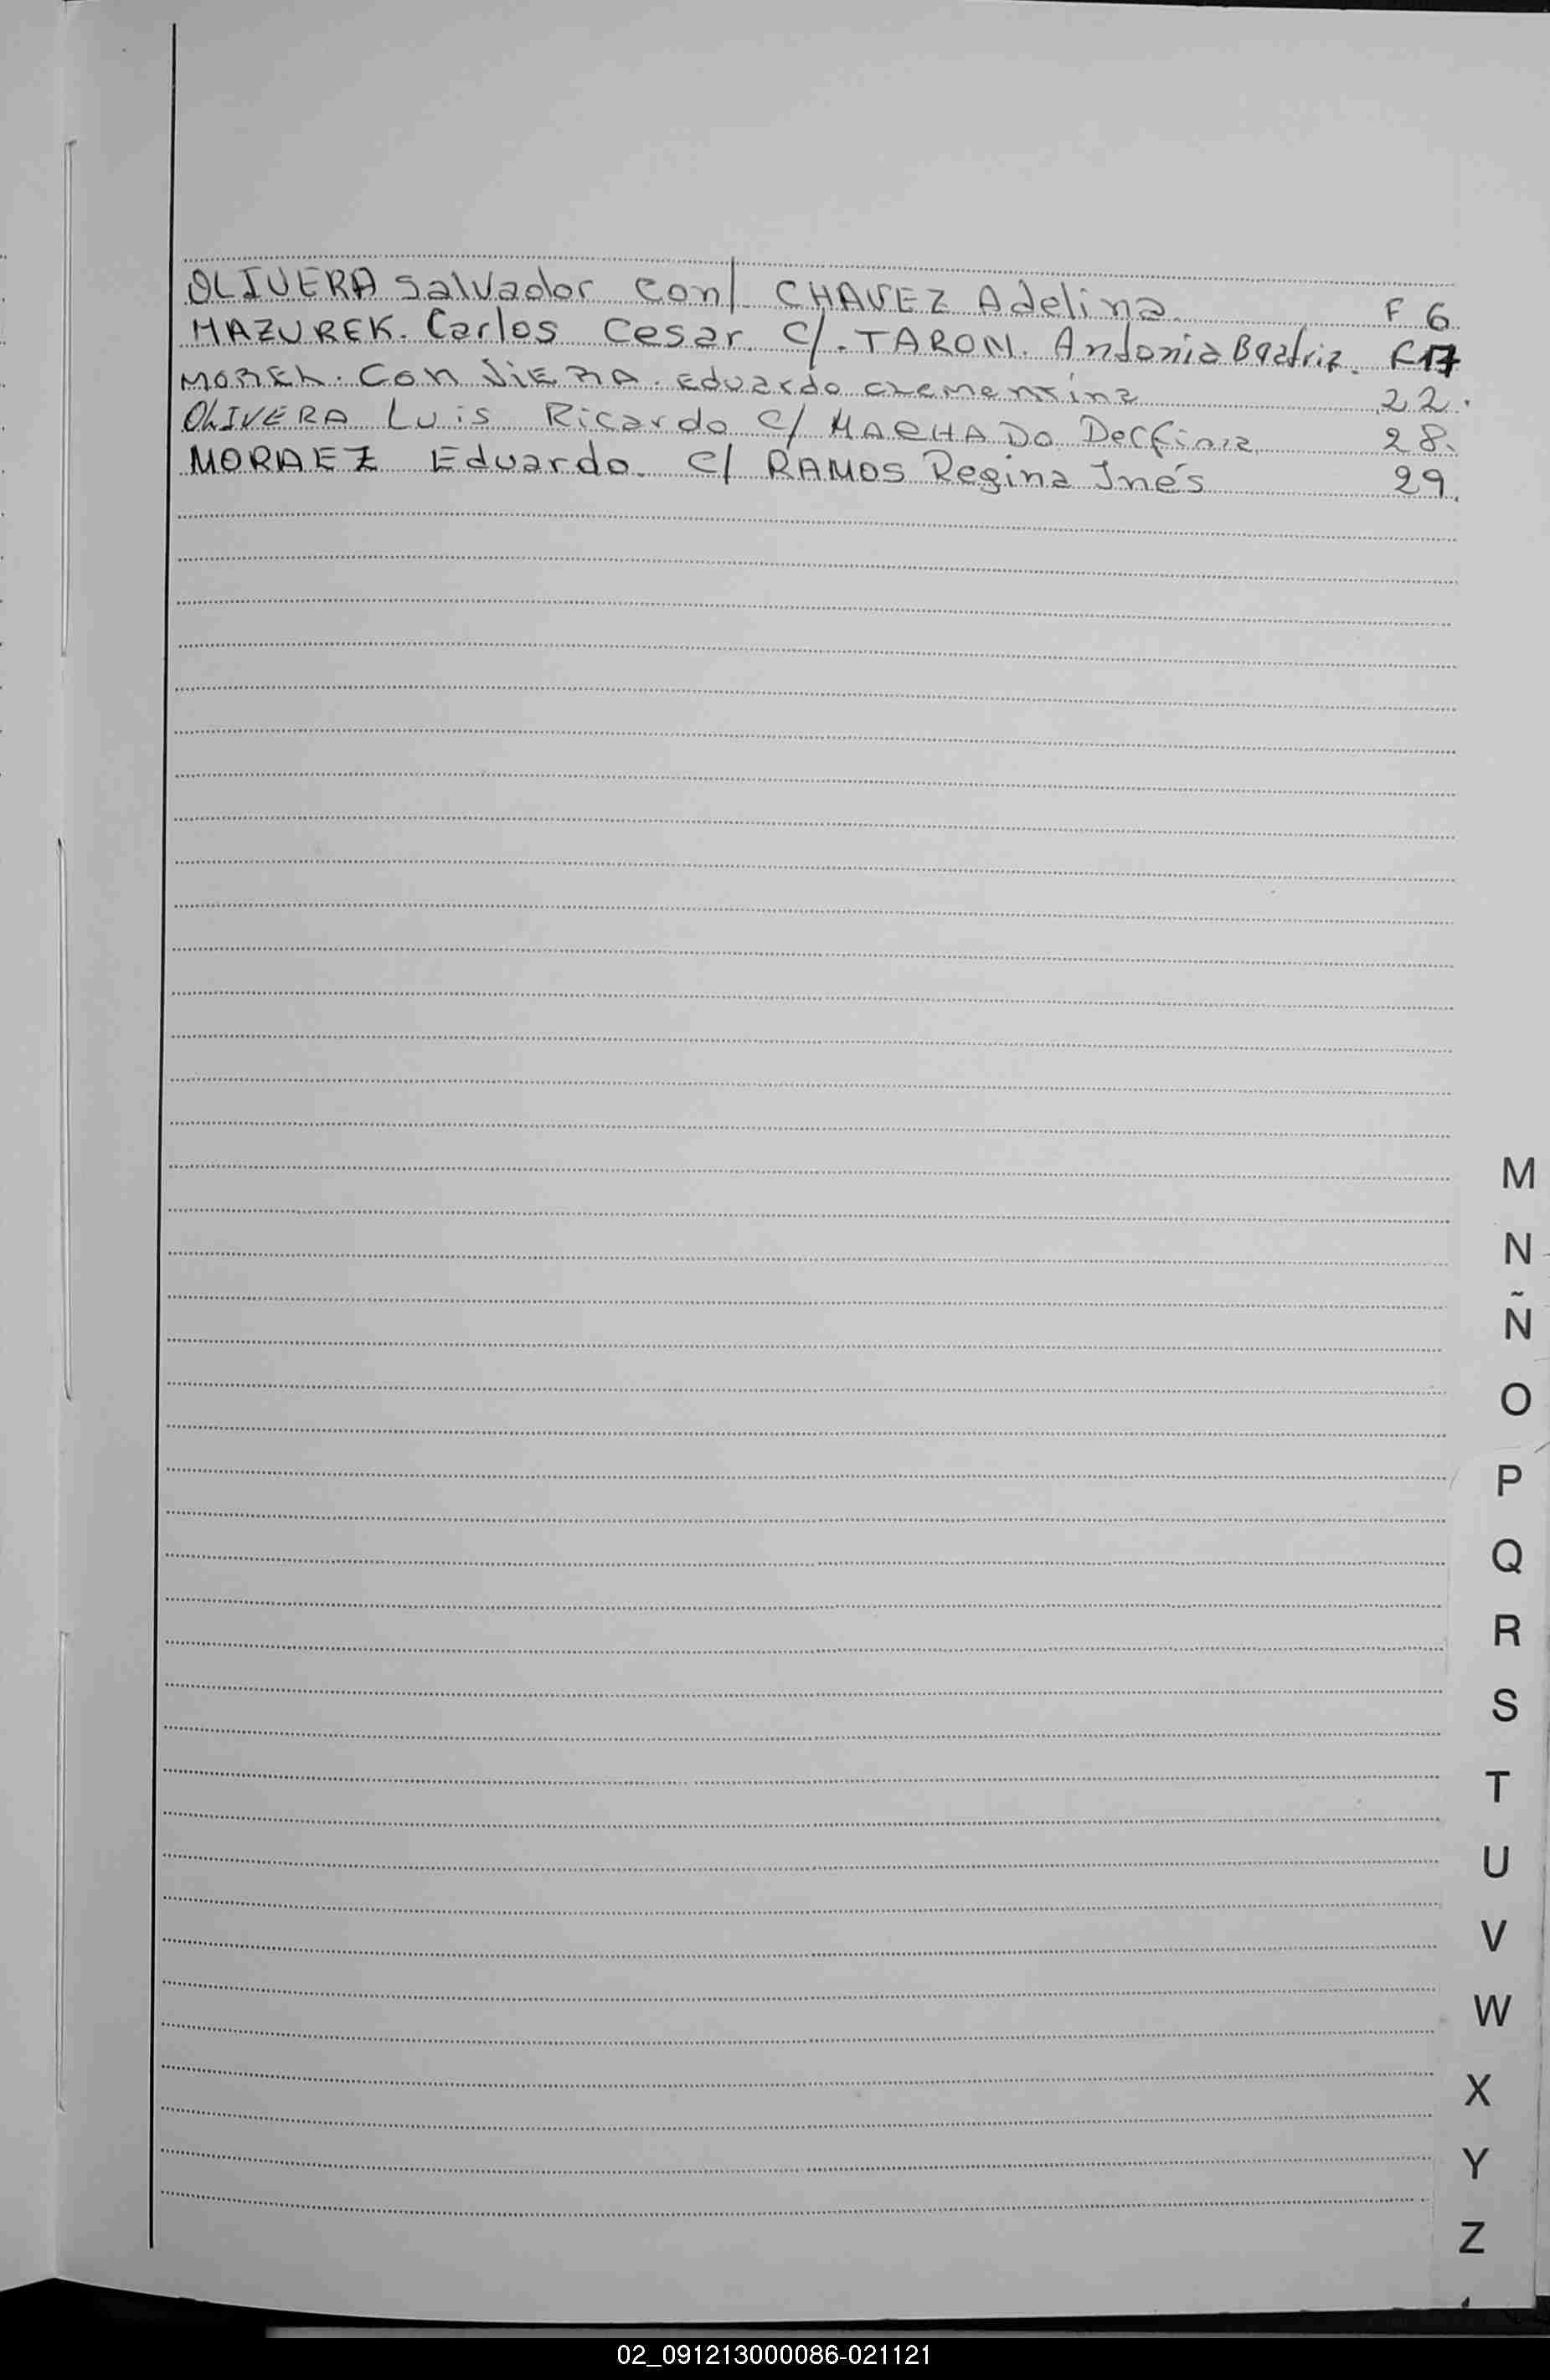 OLIVERA Salvador con/ CHAVEZ Adelina. F 6
MAZUREK. Carlos Cesar. C/. TARON. Antonia Beatriz. F 17
MOREL. Con VIERA. Eduardo Clementina 22.
OLIVERA Luis Ricardo C/ MACHADO Delfinia 28.
MORAEZ Eduardo. C/ RAMOS Regina Inés 29.
M
N
Ñ
O
P
Q
R
S
T
U
V
W
X
Y
Z
02_091213000086-021121